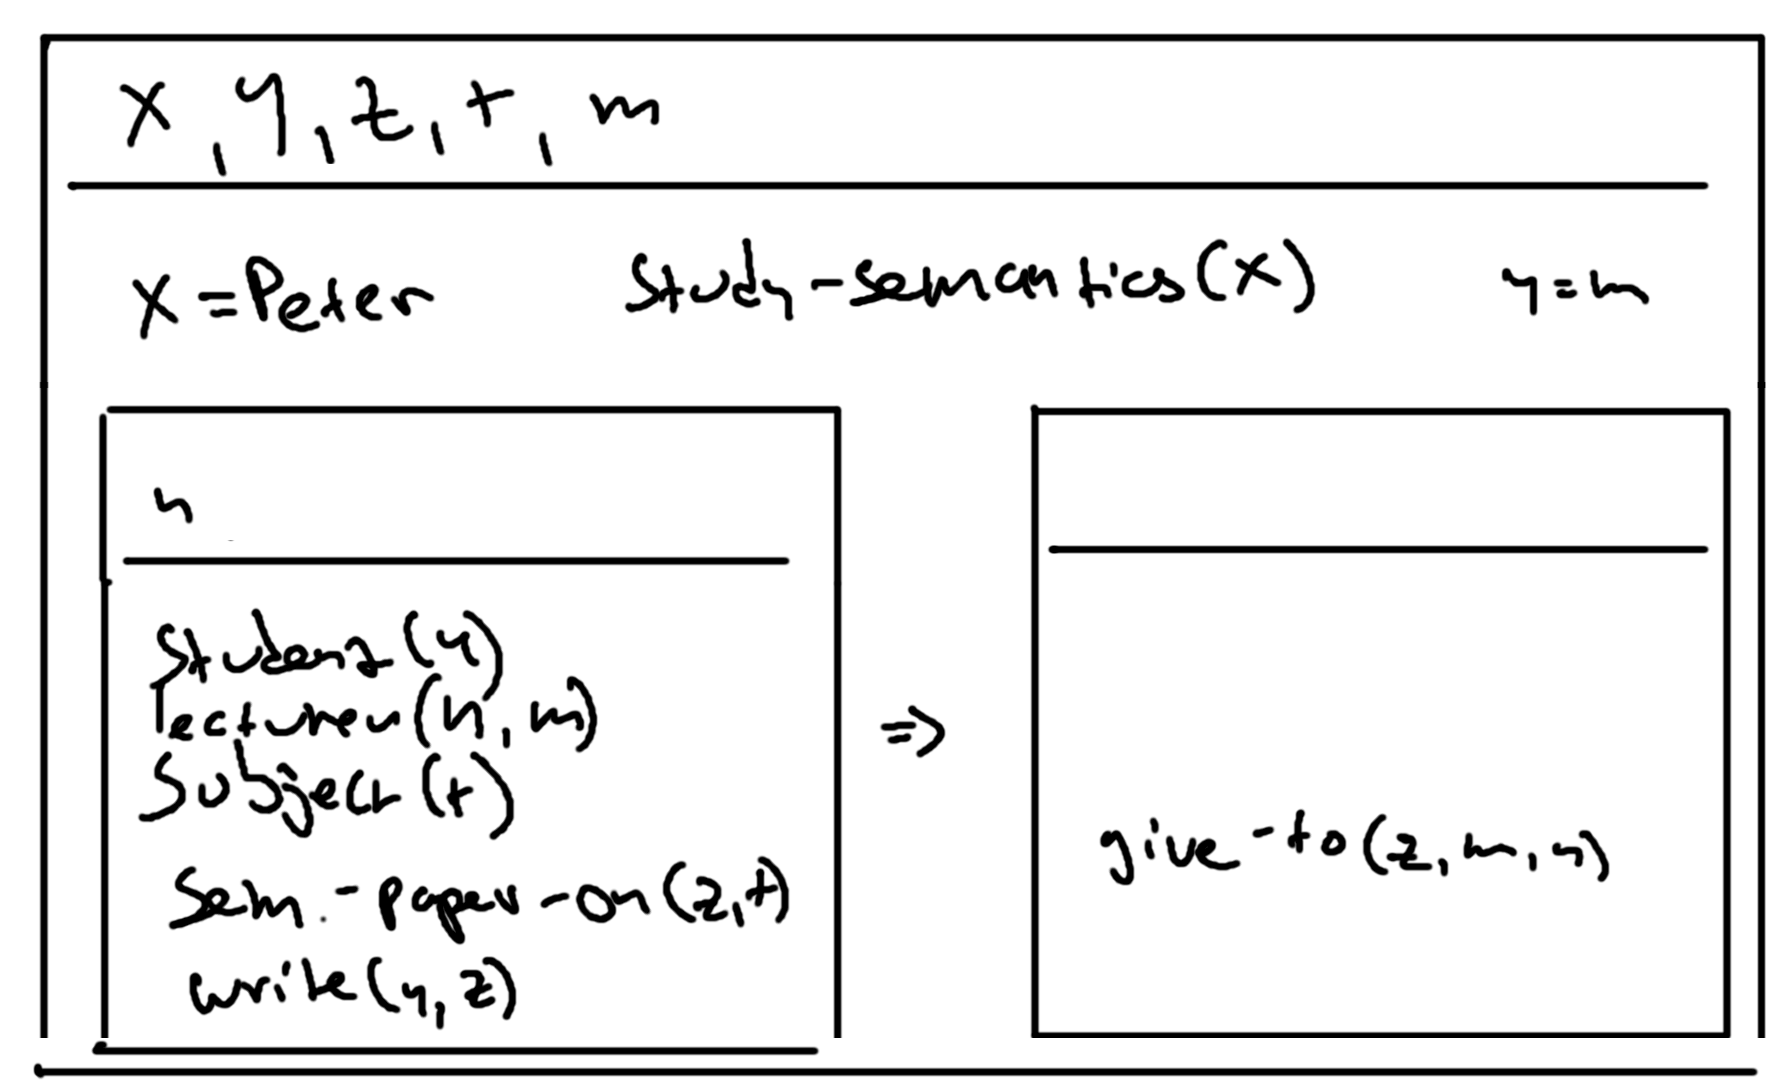 x, y, z, t, m
x = Peter study-semantics(x) y = m
n
student(y)
lecturer(n, m)
subject(t)
sem.-paper-on(z, t)
write(y, z)
=>
give-to(z, m, n)